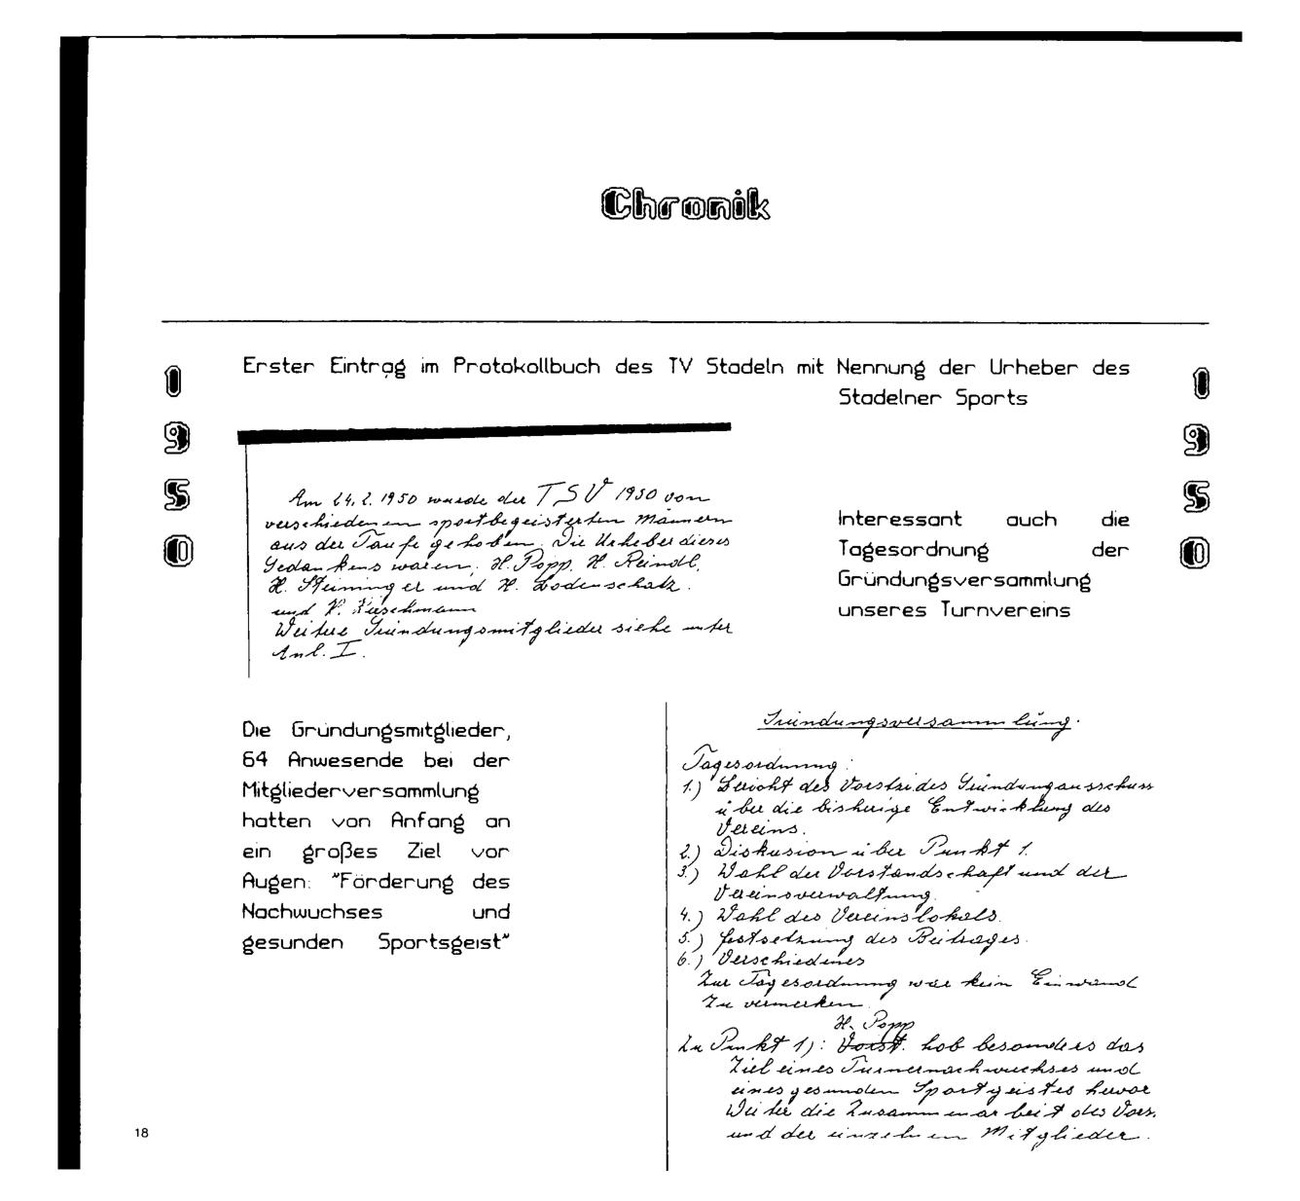 Chronik
1950
Erster Eintrag im Protokollbuch des TV Stadeln mit Nennung der Urheber des
Stadelner Sports
1950
Am 24.2.1950 wurde der TSV 1950 von
verschiedenen sportbegeisterten Männern
aus der Taufe gehoben. Die Urheber dieses
Gedankens waren, H. Popp. H. Reindl,
H. Steininger und H. Lodenschatz.
und
Weitere Gründungsmitglieder siehe unter
Anl. I.
Interessant auch die
Tagesordnung der
Gründungsversammlung
unseres Turnvereins
Die Gründungsmitglieder,
64 Anwesende bei der
Mitgliederversammlung
hatten von Anfang an
ein großes Ziel vor
Augen: "Förderung des
Nachwuchses und
gesunden Sportsgeist"
Gründungsversammlung.
Tagesordnung:
1.) Bericht des Vorstandes Gründungausschuss
über die bisherige Entwicklung des
Vereins.
2.) Diskusion über Punkt 1.
3.) Wahl der Vorstandschaft und der
Vereinsverwaltung.
4.) Wahl des Vereinslokals.
5.) Festsetzung des Beitrages.
6.) Verschiedenes
Zur Tagesordnung war kein Einwand
zu vermerken.
H. Popp
Zu Punkt 1): Vorst. hob besonders das
Ziel eines Turnernachwuchses und
eines gesunden Sportgeistes hervor
Weiter die Zusammenarbeit des Vors.
und der einzelnen Mitglieder.
18